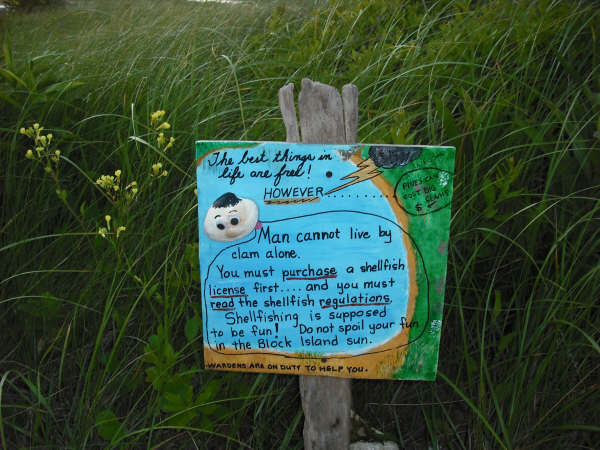 The best things in
life are free!
HOWEVER..........
FINES CAN
COST BIG
CLAMS
$
Man cannot live by
clam alone.
You must purchase a shellfish
license first....and you must
read the shellfish regulations.
Shellfishing is supposed
to be fun! Do not spoil your fun
in the Block Island sun.
WARDENS ARE ON DUTY TO HELP YOU.